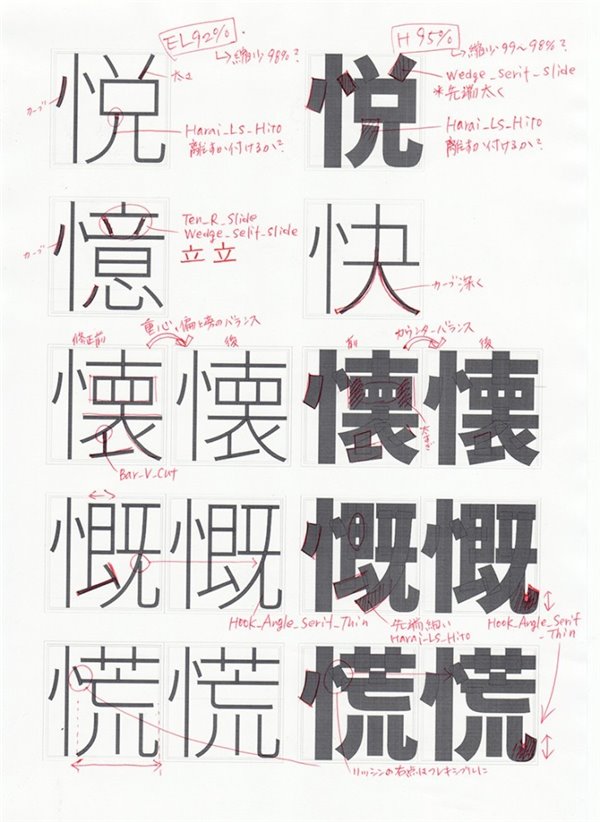 EL92%.
↳縮少98%?
H95%
↳縮少99〜98%?
悦
太さ
カーブ
Harai_LS_Hito
離すか付けるか?
悦
Wedge_Serif_Slide
*先端太く
Harai_LS_Hito
離すか付けるか?
憶
カーブ
Ten_R_Slide
Wedge_Selif_Slide
立立
快
カーブ深く
重心、偏と旁のバランス
修正前
後
懐
懐
Bar_V_Cut
カウンターバランス
前
後
懐
懐
太すぎ
慨
慨
Hook_Angle_Serif_Thin
慨
慨
先端細い
Harai_LS_Hito
Hook_Angle_Serif
_Thin
慌
慌
慌
慌
リッシンの右点はフレキシブルに